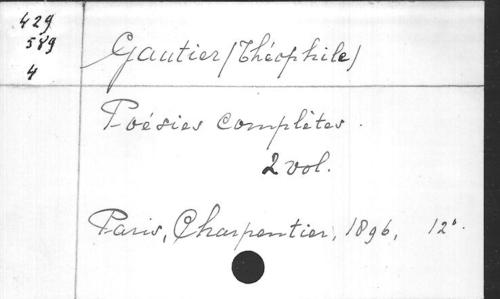 429
589
4
Gautier (Théophile)
Poésies complètes.
2 vol.
Paris, Charpentier, 1896, 12°.